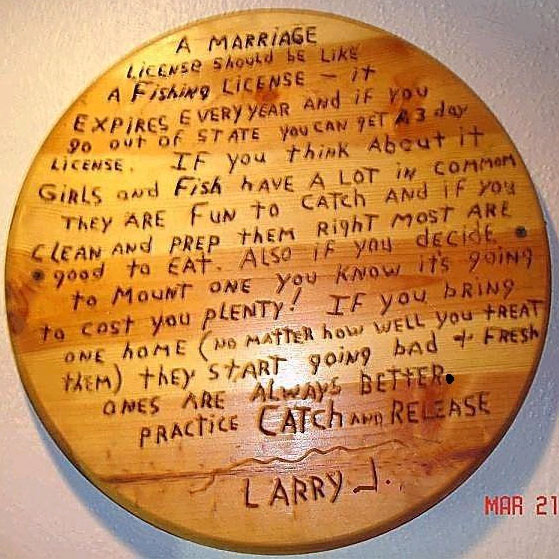 A MARRIAGE
LICENSE Should bE LikE
A Fishing LICENSE – it
EXPIRES EVERY YEAR AND if you
go out of STATE you CAN gET A 3 day
LICENSE. IF you think About it
GIRLS and Fish HAVE A LOT in COMMOM
THEY ARE FUN to CATCH AND if you
CLEAN AND PREP tHEM Right MOST ARE
good to EAT. ALSO if you dECIdE
to MOUNT ONE you KNOW it's going
to cost you PLENTY! IF you bRING
ONE hOME (NO MATTER how WELL you TREAT
tHEM) tHEY START going bAd + FRESH
ONES ARE ALWAYS BETTER.
PRACTICE CATCh AND RELEASE
LARRY J.
MAR 21